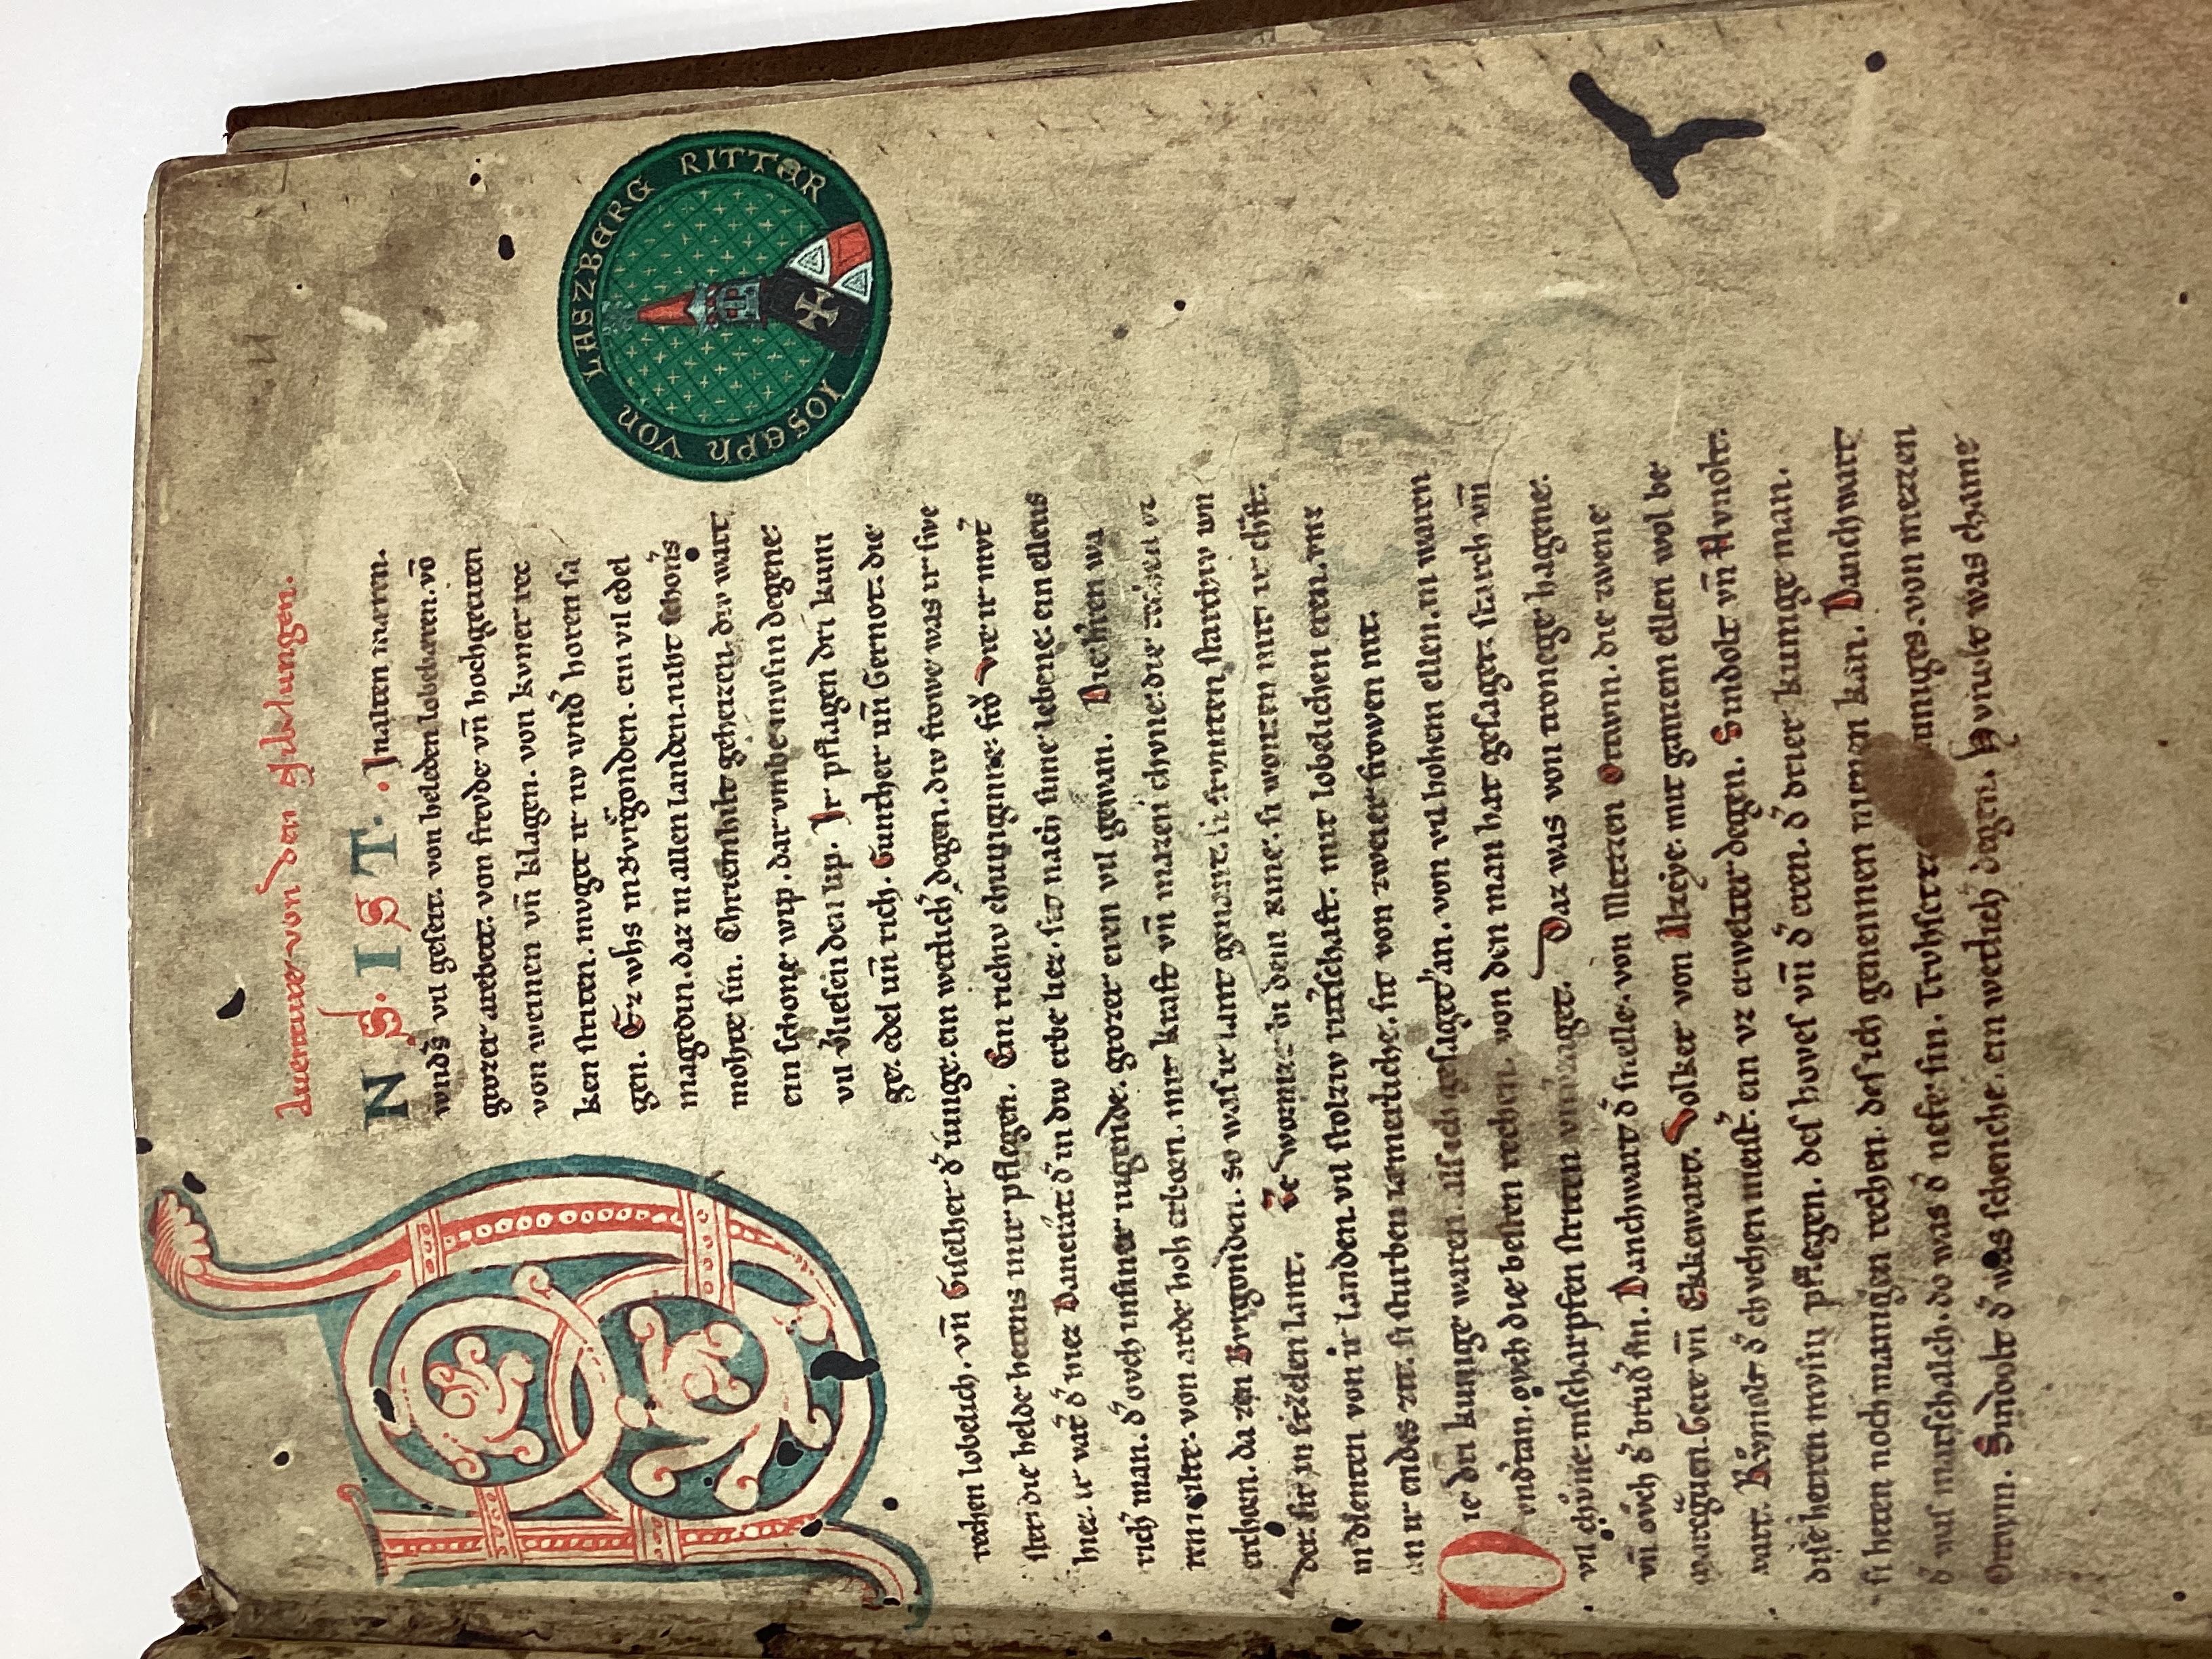 Auenture von den Nibelungen.
VNS. IST. In alten mæren.
wnds vil geseit. von heleden lobebæren. võ
grozer arebeit. von frevde vñ hochgeciten
von weinen vñ klagen. von kvner rec
ken striten. mvget ir nv wnd horen sa
gen. Ez whs in Bvrgonden. ein vil edel
magedin. daz in allen landen. niht schoners
mohte sin. Chriemhilt geheizen. div wart
ein schone wip. dar vmbe mvsin degene
vil vliesen den lip. Ir pflagen dri kuni
ge. edel uñ rich. Gunther uñ Gernot. die
rechen lobelich. vñ Giselher d iunge. ein wetlich degen. div frowe was ir swe
ster. die helde hetens mir pflegen. Ein richiv chuniginne. frŏ Vte ir mvt
hiez. ir vater d hiez Dancrat. d in div erbe liez. sit nach sime lebene. ein ellens
rich man. d ovch in siner iugende. grozer eren vil gewan. Die hren wa
ren milte. von arde hoh erborn. mit kraft vñ mazen chvne. die rechen vz
erchorn. da zen Bvrgonden. so was ir lant genant. si frvmten starchiv wn
der. sit in Etzelen lant. Ze Wormze bi dem Rine. si wonten mit ir chraft.
in dienten von ir landen. vil stolziv ritschaft. mit lobelichen eren. vnz
an ir endes zit. si sturben iæmerliche. sit von zweier frowen nit.
Die dri kunige waren. als ich gesaget han. von vil hohem ellen. in waren
vndertan. ovch die besten rechen. von den man hat gesaget. starch vñ
vil chvne. in scharpfen striten vnverzaget. Daz was von Tronege Hagene.
vñ ovch d brud sin. Danchwart d snelle. von Metzen Ortwin. die zwene
marcgraven. Gere vñ Ekkewart. Volker von Alzeye. mit ganzem ellen wol be
wart. Rvmolt d chvchen meist. ein vz erwelter degen. Sindolt vñ Hvnolt.
dise herren mvsin pflegen. des hoves vñ d eren. d drier kunige man.
si heten noch manigen rechen. des ich genennen niemen kan. Danchwart
d was marschalch. do was d nefe sin. Trvhsetze kuniges. von Mezen
Ortwin. Sindolt d was schenche. ein wetlich degen. Hvnolt was chame
LASZBERG RITTER
IOSEPH VON